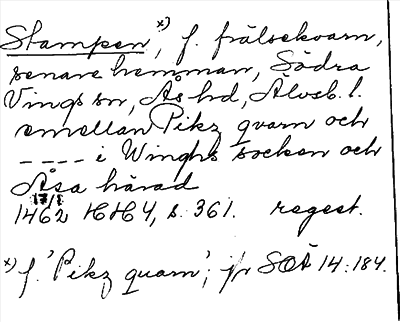 Stampen x), f. frälsekvarn,
senare hemman, Södra
Vings sn, Ås hd, Älvsb. l.
emellan Pikz qvarn och
---- i Winghs socken och
Åsa härad
17/8
1462 HH 4, s. 361. regest.
x) f. 'Pikz quarn'; jfr SOÄ 14:184.